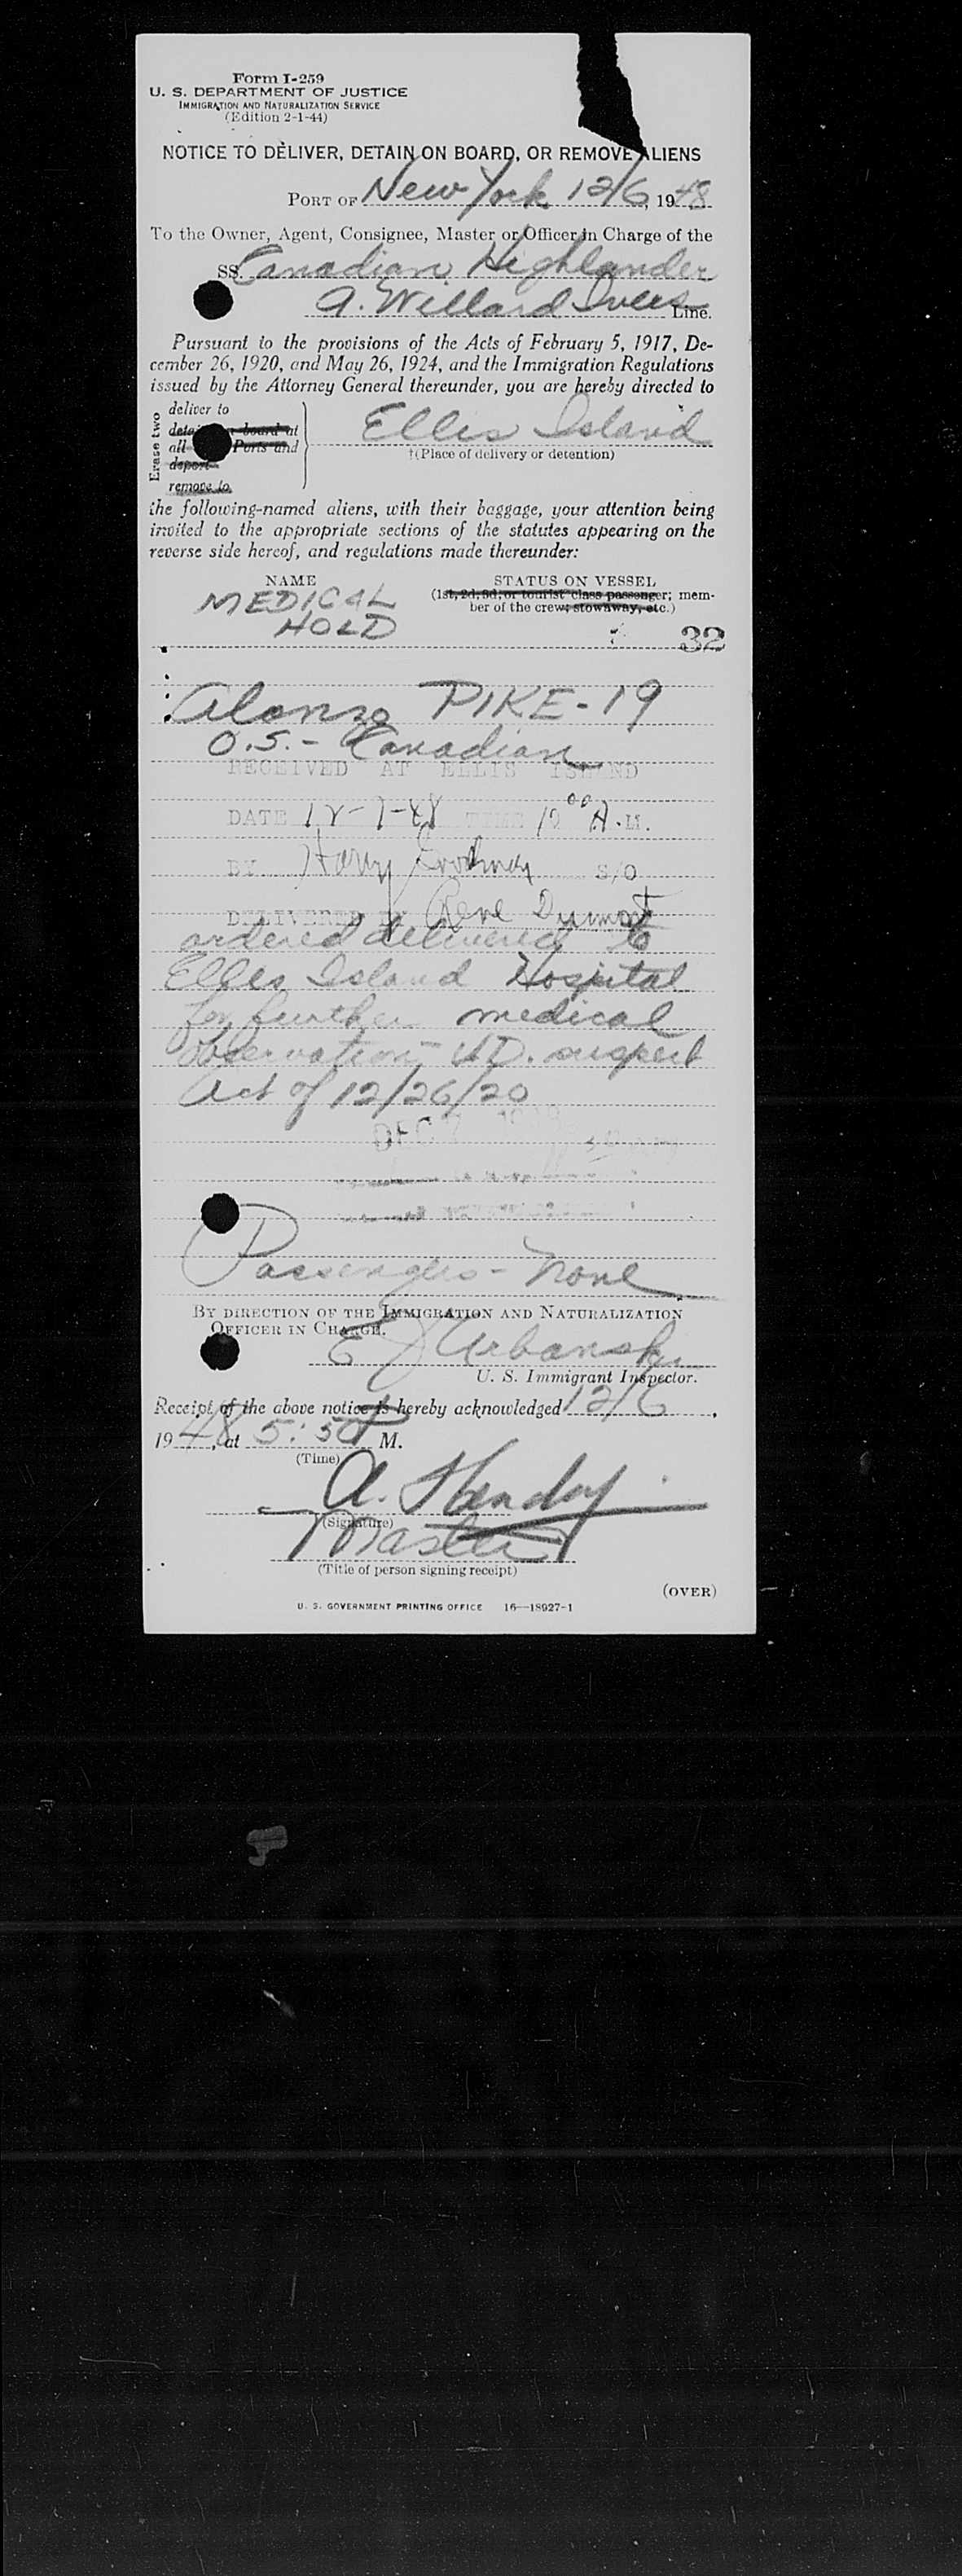 Form I-259
U. S. DEPARTMENT OF JUSTICE
IMMIGRATION AND NATURALIZATION SERVICE
(Edition 2-1-44)
NOTICE TO DELIVER, DETAIN ON BOARD, OR REMOVE ALIENS
PORT OF New York 12/6, 1948
To the Owner, Agent, Consignee, Master or Officer in Charge of the
SS. Canadian Highlander
A. Willard Ives Line.
Pursuant to the provisions of the Acts of February 5, 1917, De-
cember 26, 1920, and May 26, 1924, and the Immigration Regulations
issued by the Attorney General thereunder, you are hereby directed to
Erase two
deliver to
board at
all Ports and
deport
remove to
Ellis Island
†(Place of delivery or detention)
the following-named aliens, with their baggage, your attention being
invited to the appropriate sections of the statutes appearing on the
reverse side hereof, and regulations made thereunder:
NAME STATUS ON VESSEL
(1st, 2d, 3d, or tourist class passenger; mem-
ber of the crew; stowaway, etc.)
MEDICAL
HOLD
32
Alonzo PIKE-19
O.S.- Canadian
RECEIVED AT ELLIS ISLAND
DATE 12-7-48 TIME 12 00 A.M.
BY Harry S/O
DELIVERED BY Rene Dumont
ordered delivered to
Ellis Island Hospital
for further medical
observation - V.D. suspect
Act of 12/26/20
DEC 7
Passengers - None
BY DIRECTION OF THE IMMIGRATION AND NATURALIZATION
OFFICER IN CHARGE.
E J Urbanski
U. S. Immigrant Inspector.
Receipt of the above notice is hereby acknowledged 12/6,
1948, at 5:50 P M.
(Time)
A. Handy
(Signature)
Master
(Title of person signing receipt)
(OVER)
U. S. GOVERNMENT PRINTING OFFICE 16—18927-1